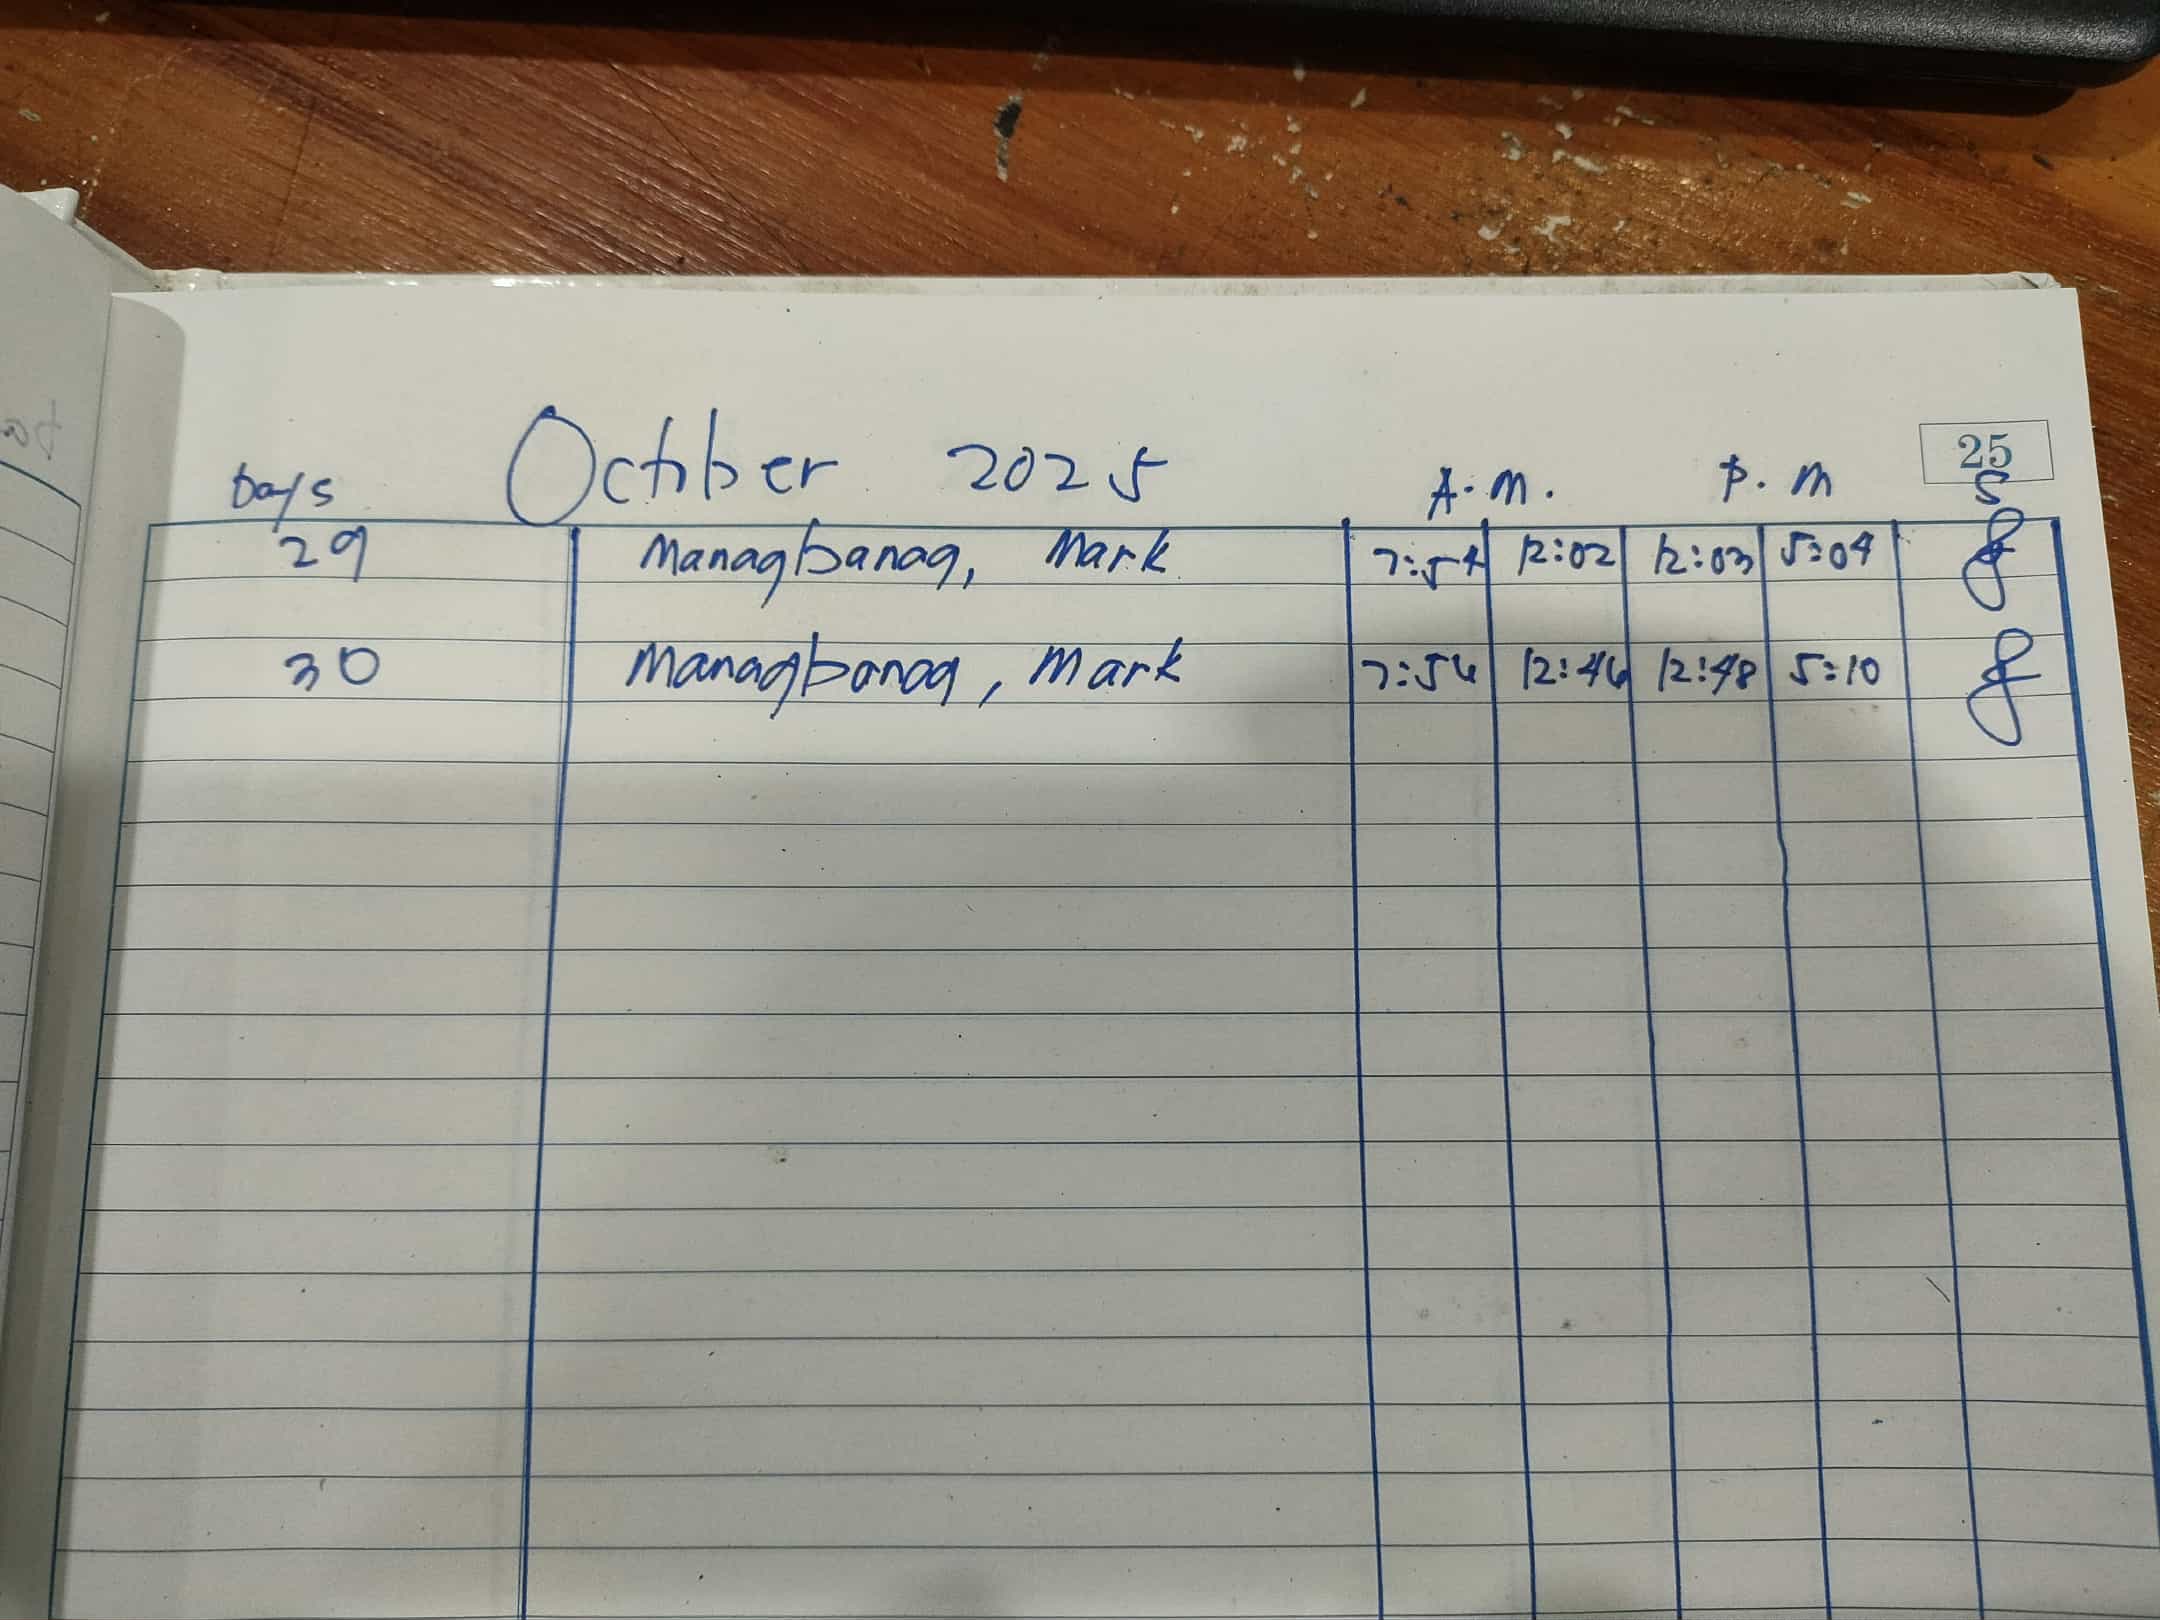 25
Days October 2025 A.M. P.M S
29 Managbanag, Mark 7:54 12:02 12:03 5:04
30 Managbanag, Mark 7:56 12:46 12:48 5:10